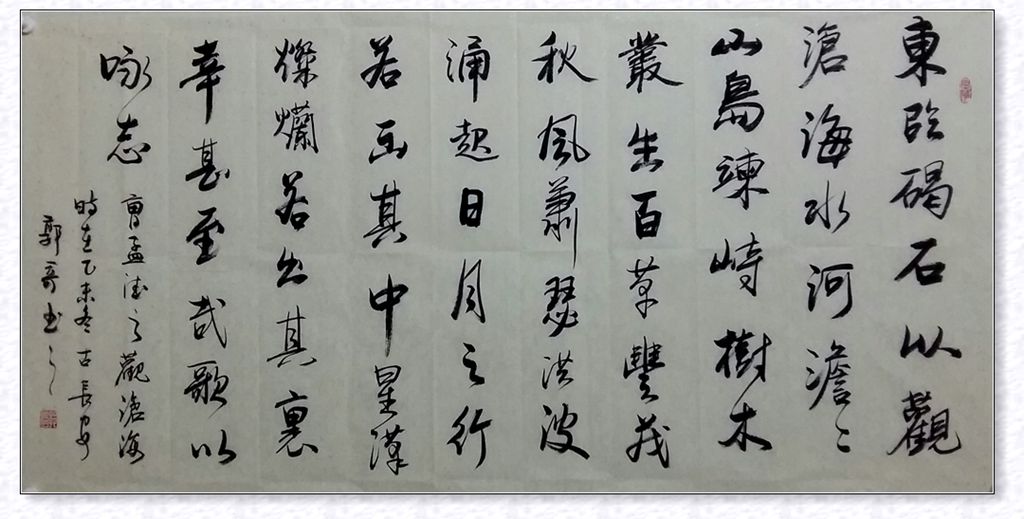 東臨碣石以觀
滄海水河澹〻
山島竦峙樹木
叢生百草豐茂
秋風蕭瑟洪波
涌起日月之行
若出其中星漢
燦爛若出其裏
幸甚至哉歌以
咏志
曹孟德之觀滄海
時在乙未冬古長安
郭哥书之